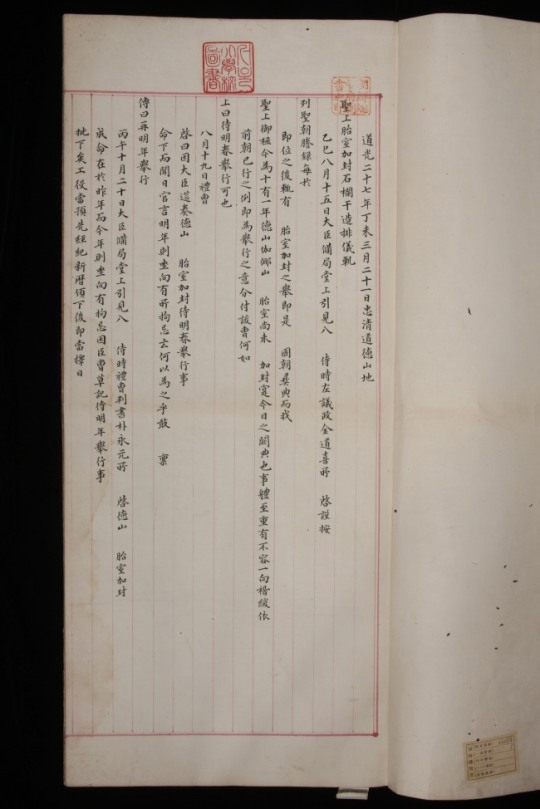 道光二十七年丁未三月二十一日忠清道德山地
聖上胎室加封石欄干造排儀軌
乙巳八月十五日大臣備局堂上引見入 侍時左議政金道喜所 啓謹按
列聖朝謄錄每於
即位之後輒有 胎室加封之舉即是 國朝彛典而我
聖上御極今為十有一年德山伽倻山 胎室尚未 加封寔今日之闕典也事體至重有不容一向稽緩依
前朝已行之例即為舉行之意分付該曹何如
上曰待明春舉行可也
八月十九日禮曹
啓曰因大臣筵奏德山 胎室加封待明春舉行事
命下而聞日官言明年則坐向有所拘忌云何以為之乎敢 稟
傳曰再明年舉行
丙午十月二十日大臣備局堂上引見入 侍時禮曹判書朴永元所 啓德山 胎室加封
成命在於昨年而今年則坐向有拘忌因臣曹草記待明年舉行事
批下矣工役當預先經紀新曆頒下後即當擇日
小學校
圖書